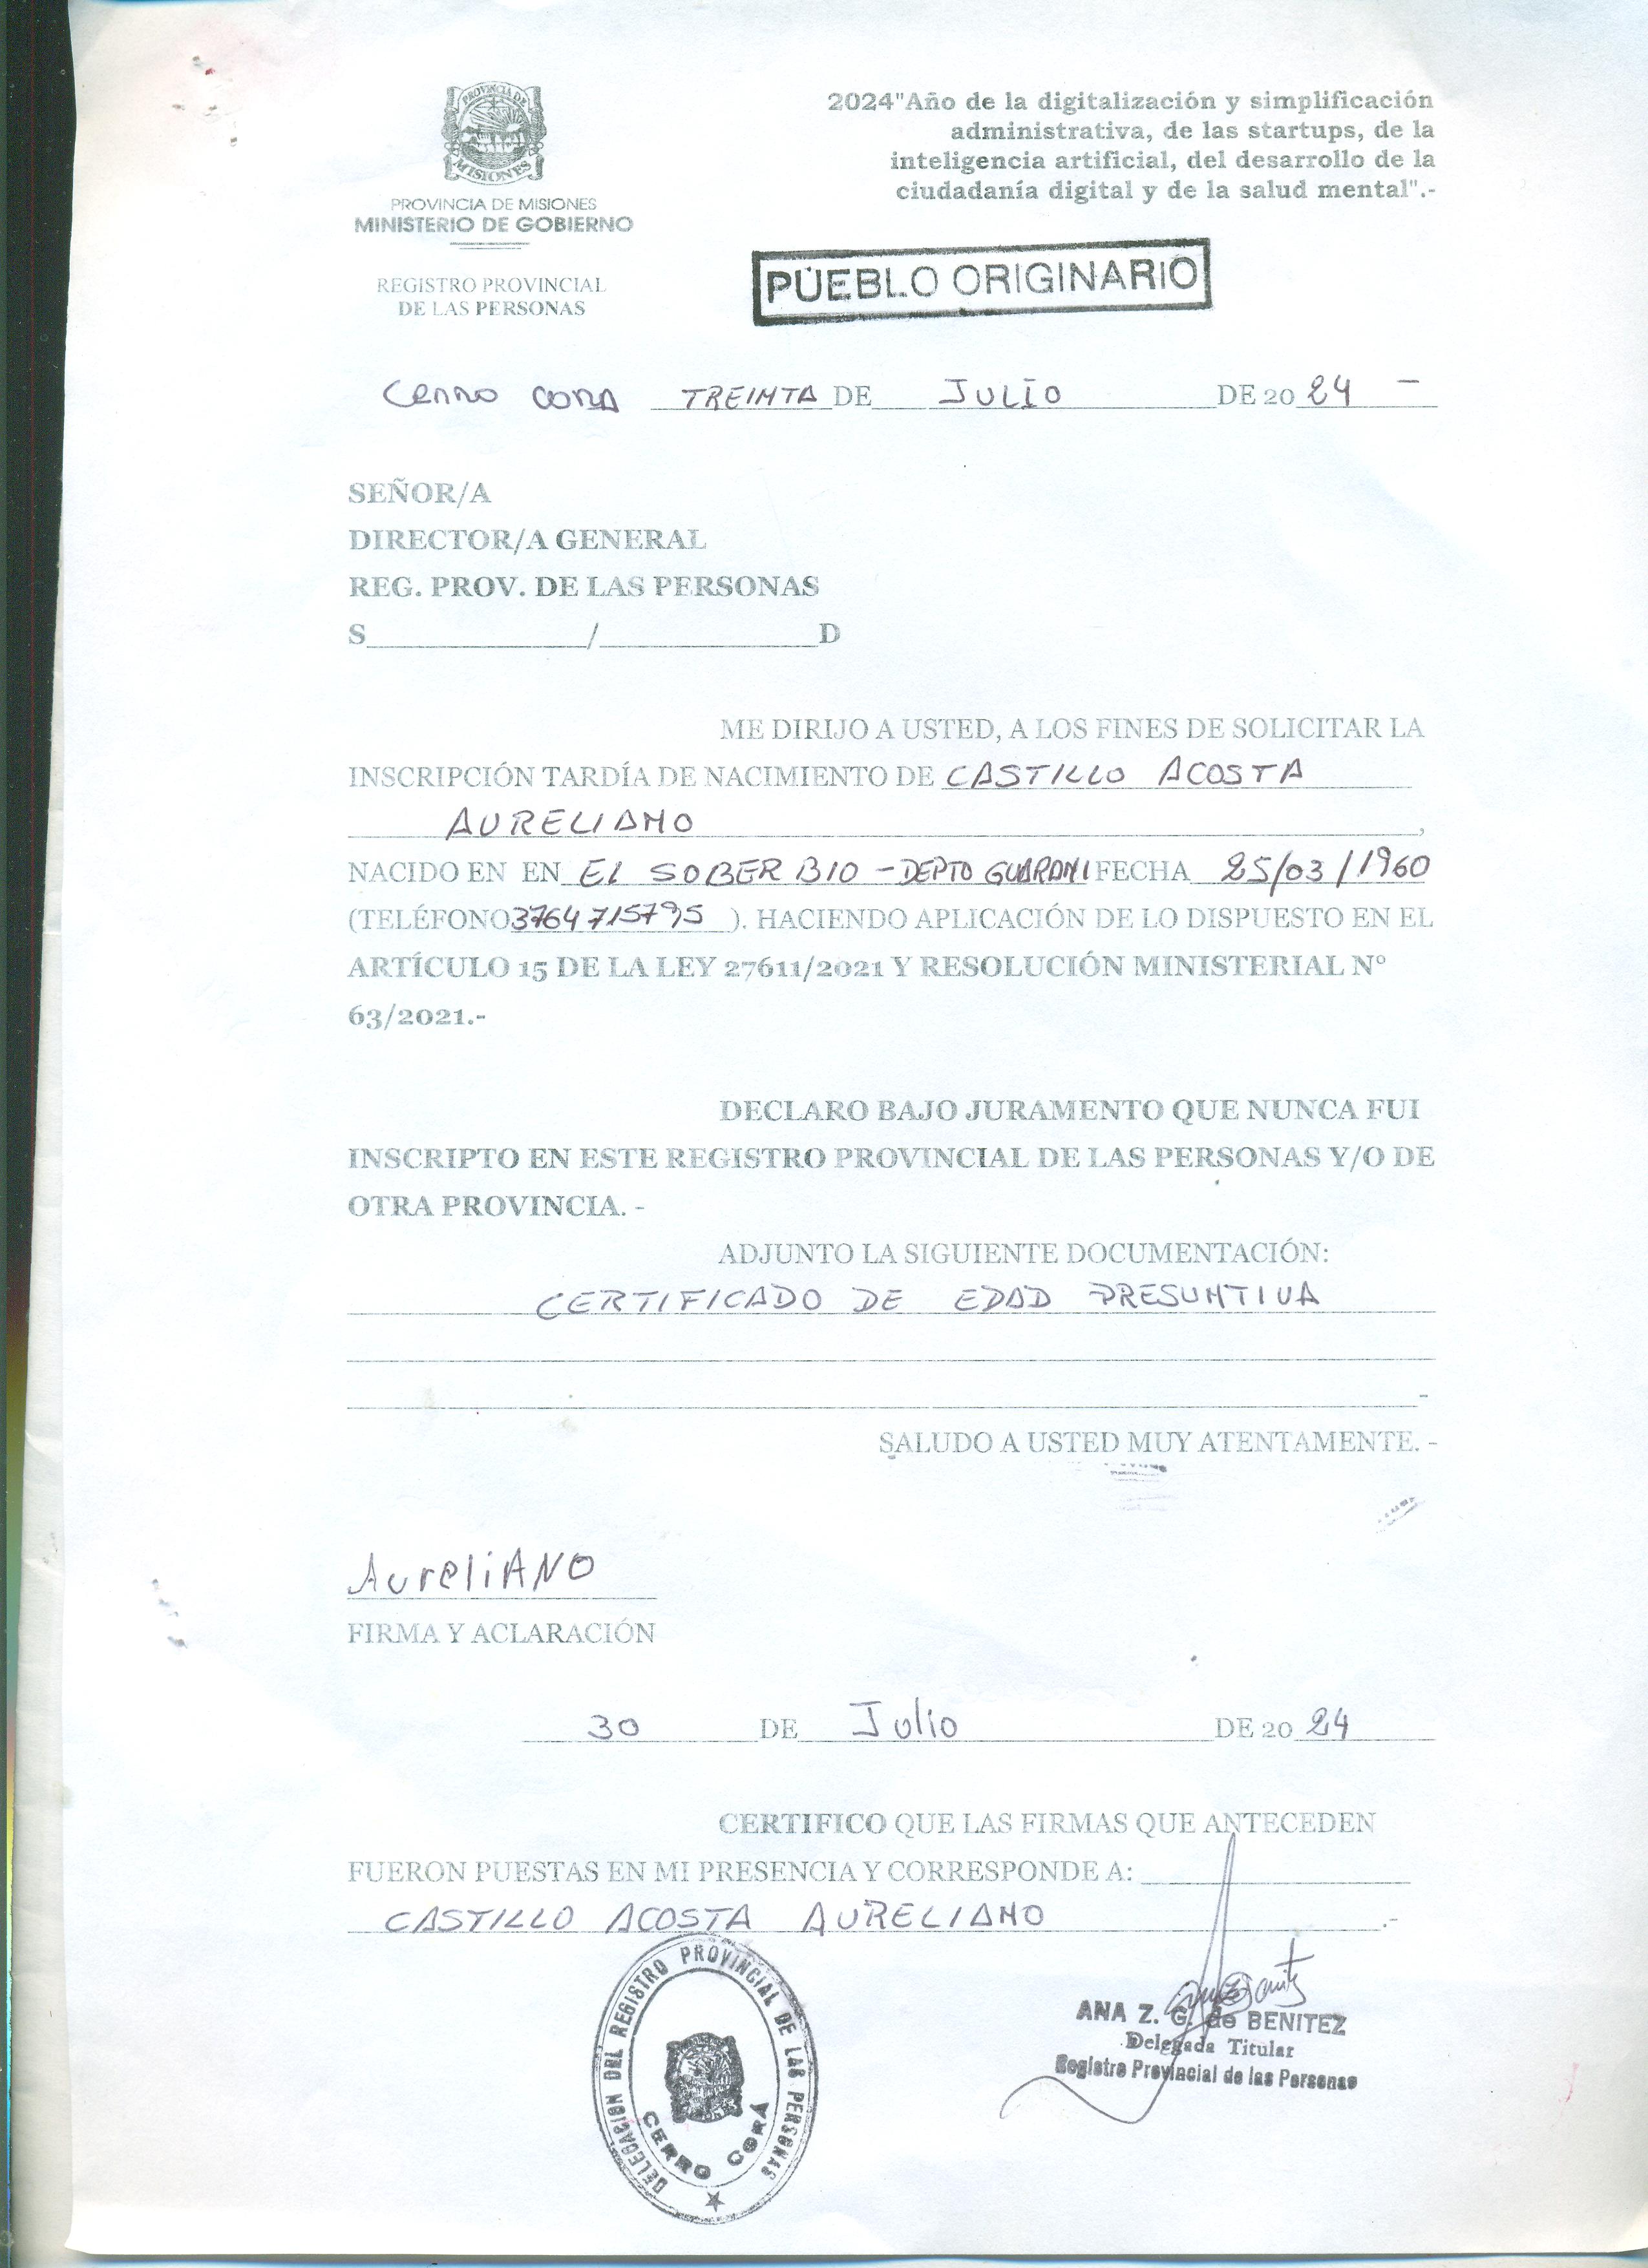 PROVINCIA DE
MISIONES
PROVINCIA DE MISIONES
MINISTERIO DE GOBIERNO
REGISTRO PROVINCIAL
DE LAS PERSONAS
2024"Año de la digitalización y simplificación
administrativa, de las startups, de la
inteligencia artificial, del desarrollo de la
ciudadanía digital y de la salud mental".-
PUEBLO ORIGINARIO
CERRO CORA TREINTA DE JULIO DE 20 24 -
SEÑOR/A
DIRECTOR/A GENERAL
REG. PROV. DE LAS PERSONAS
S____________/____________D
ME DIRIJO A USTED, A LOS FINES DE SOLICITAR LA
INSCRIPCIÓN TARDÍA DE NACIMIENTO DE CASTILLO ACOSTA
AURELIANO,
NACIDO EN EN EL SOBERBIO - DEPTO GUARANI FECHA 25/03/1960
(TELÉFONO 3764 715795 ). HACIENDO APLICACIÓN DE LO DISPUESTO EN EL
ARTÍCULO 15 DE LA LEY 27611/2021 Y RESOLUCIÓN MINISTERIAL N°
63/2021.-
DECLARO BAJO JURAMENTO QUE NUNCA FUI
INSCRIPTO EN ESTE REGISTRO PROVINCIAL DE LAS PERSONAS Y/O DE
OTRA PROVINCIA. -
ADJUNTO LA SIGUIENTE DOCUMENTACIÓN:
CERTIFICADO DE EDAD PRESUNTIVA
SALUDO A USTED MUY ATENTAMENTE. -
AureliANO
FIRMA Y ACLARACIÓN
30 DE Julio DE 20 24
CERTIFICO QUE LAS FIRMAS QUE ANTECEDEN
FUERON PUESTAS EN MI PRESENCIA Y CORRESPONDE A:
CASTILLO ACOSTA AURELIANO.-
DELEGACION DEL REGISTRO PROVINCIAL DE LAS PERSONAS
CERRO CORÁ
ANA Z. G. de BENITEZ
Delegada Titular
Registro Provincial de las Personas